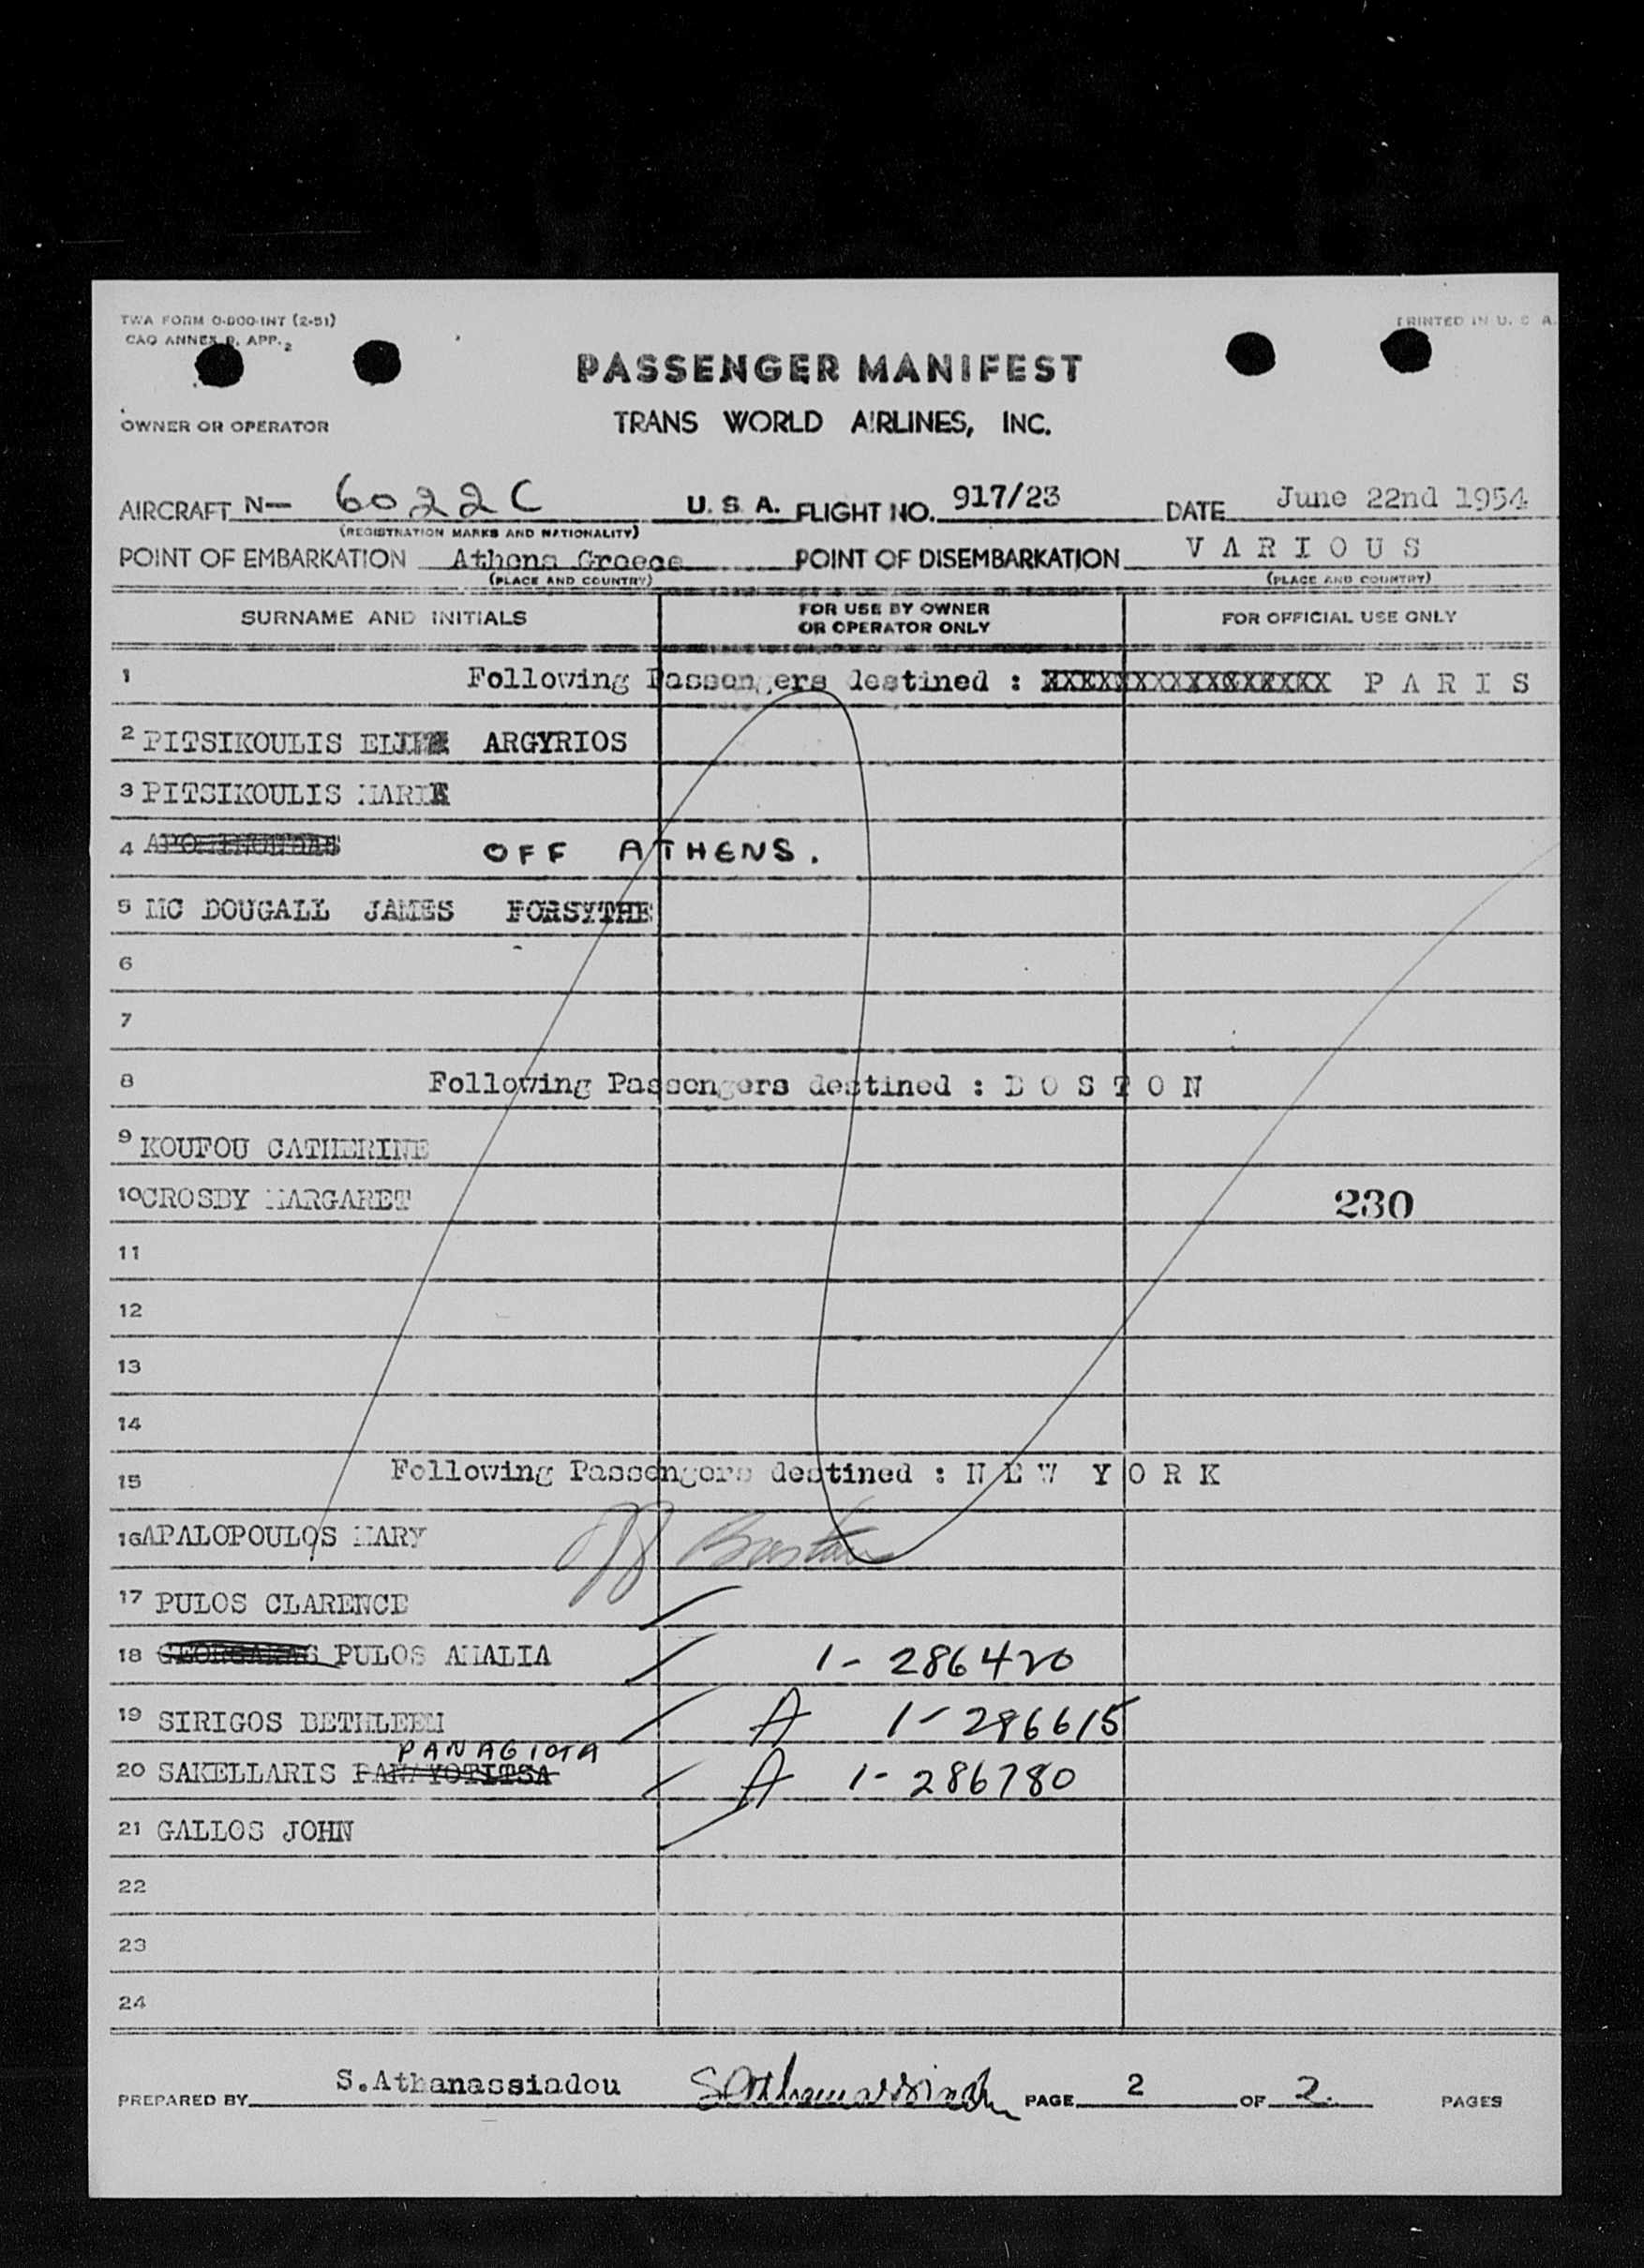 TWA FORM O-800-INT (2-51)
PRINTED IN U. S A.
CAO ANNEX 9, APP. 2
PASSENGER MANIFEST
OWNER OR OPERATOR
TRANS WORLD AIRLINES, INC.
AIRCRAFT N— 6022C U. S A. FLIGHT NO. 917/23 DATE June 22nd 1954
(REGISTRATION MARKS AND NATIONALITY)
POINT OF EMBARKATION Athens Greece POINT OF DISEMBARKATION VARIOUS
(PLACE AND COUNTRY) (PLACE AND COUNTRY)
SURNAME AND INITIALS FOR USE BY OWNER OR OPERATOR ONLY FOR OFFICIAL USE ONLY
1 Following Passengers destined : XXXXXXXXXXXXXXXX P A R I S
2 PITSIKOULIS ARGYRIOS
3 PITSIKOULIS MARIA
4 OFF ATHENS.
5 MC DOUGALL JAMES FORSYTHE
6
7
8 Following Passengers destined : B O S T O N
9 KOUFOU CATHERINE
10 CROSBY MARGARET 230
11
12
13
14
15 Following Passengers destined : N E W Y O R K
16 APALOPOULOS MARY Off Boston
17 PULOS CLARENCE
18 GEORGAKAS PULOS AMALIA 1-286420
19 SIRIGOS BETHLEEM A 1-286615
PANAGIOTA
20 SAKELLARIS PANAYOTITSA A 1-286780
21 GALLOS JOHN
22
23
24
PREPARED BY S.Athanassiadou PAGE 2 OF 2. PAGES